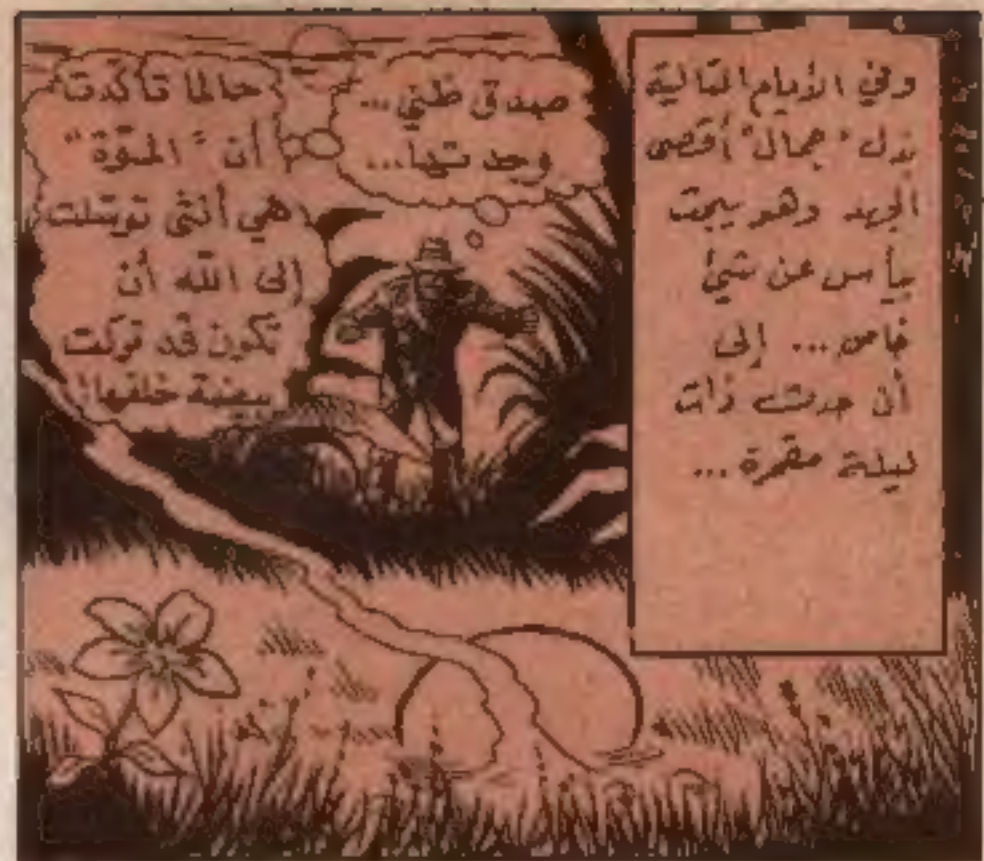 وفي الأيام التالية
بذل "جمال" أقصى
الجهد وهو يبحث
بيأس عن شيئ
خاص ... إلى
أن حدث ذات
ليلة مقمرة ...
صدق ظني ...
وجدتها ...
حالما تأكدت
أن "المتوّة"
هي أنثى توسّلت
إلى الله أن
تكون قد تركت
بيضة خلفها!